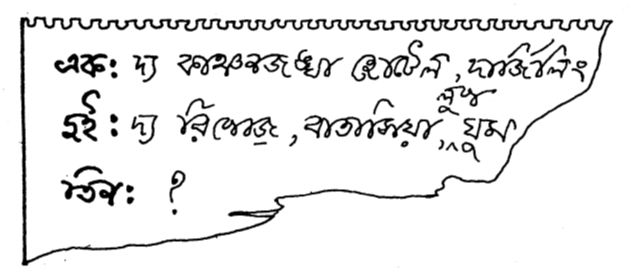 এক: দ্য কাঞ্চনজঙ্ঘা হোটেল, দার্জিলিং
দুই: দ্য রিপোজ, বাতাসিয়া লুপ, ঘুম
তিন: ?